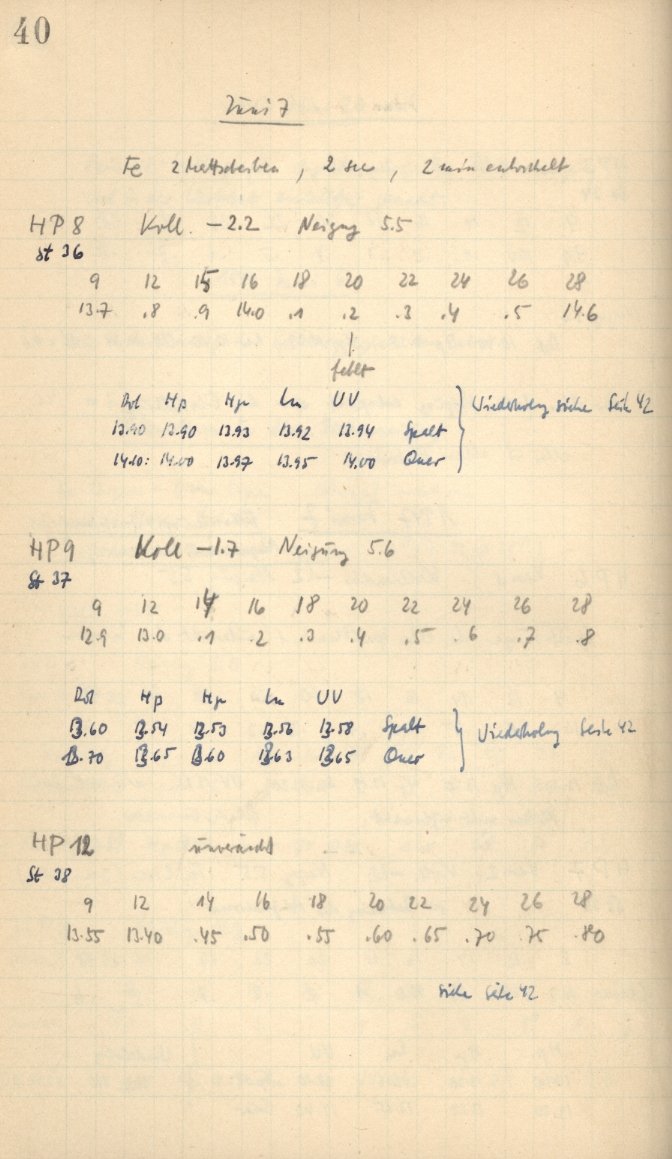 40
Juni 7
Fe 2 Mattscheiben, 2 sec, 2 min entwickelt
HP 8 Koll. -2.2 Neigung 5.5
St 36
9 12 15 16 18 20 22 24 26 28
13.7 .8 .9 14.0 .1 .2 .3 .4 .5 14.6
fehlt
Rot Hβ Hγ UV
13.90 13.90 13.93 13.92 13.94 Spalt
14.10: 14.00 13.97 13.95 14.00 Quer
Wiederholung siehe Seite 42
HP 9 Koll -1.7 Neigung 5.6
St 37
9 12 14 16 18 20 22 24 26 28
12.9 13.0 .1 .2 .3 .4 .5 .6 .7 .8
Rot Hβ Hγ UV
13.60 13.54 13.53 13.56 13.58 Spalt
13.70 13.65 13.60 13.63 13.65 Quer
Wiederholung Seite 42
HP 12 unverändert
St 38
9 12 14 16 18 20 22 24 26 28
13.55 13.40 .45 .50 .55 .60 .65 .70 .75 .80
siehe Seite 42